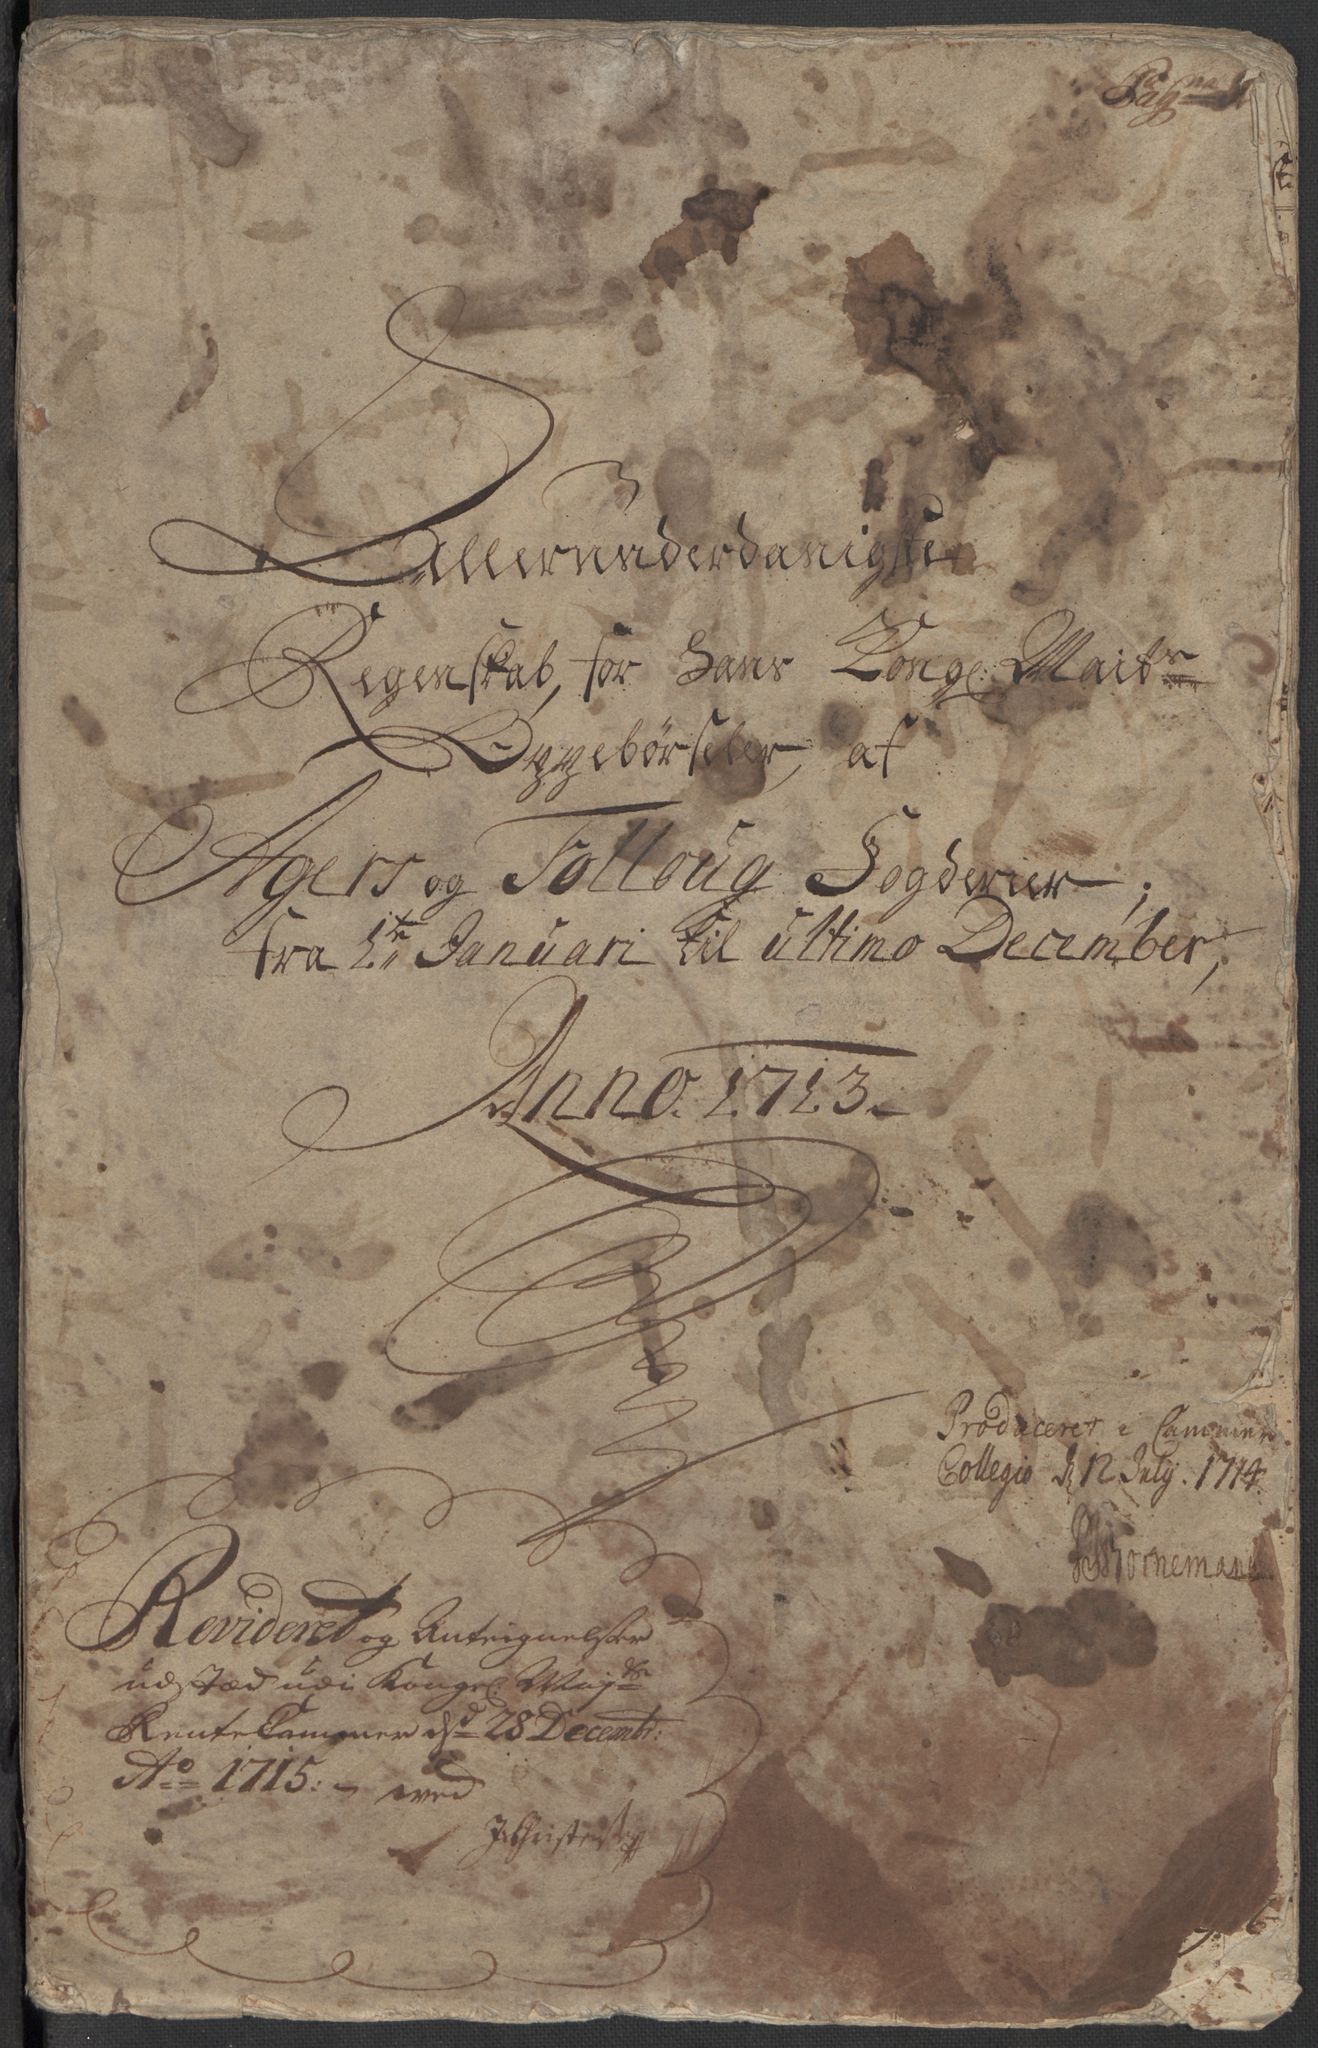 Pagna 1
Allerunderdanigste
Regenskab, for Hans Kongl: Maits
Oppebørseler, af
Agers og Folloug Fogderier,
fra 1te Januari til ultimo December,
Anno. 1713.
Produceret i Cammer
Collegio d 12 July. 1714.
Bornemann
Revideret og Anteignelser
udstæd udi Kongl. Mayts
Rente Cammer dend 28 Decembr:
Ao 1715: ved